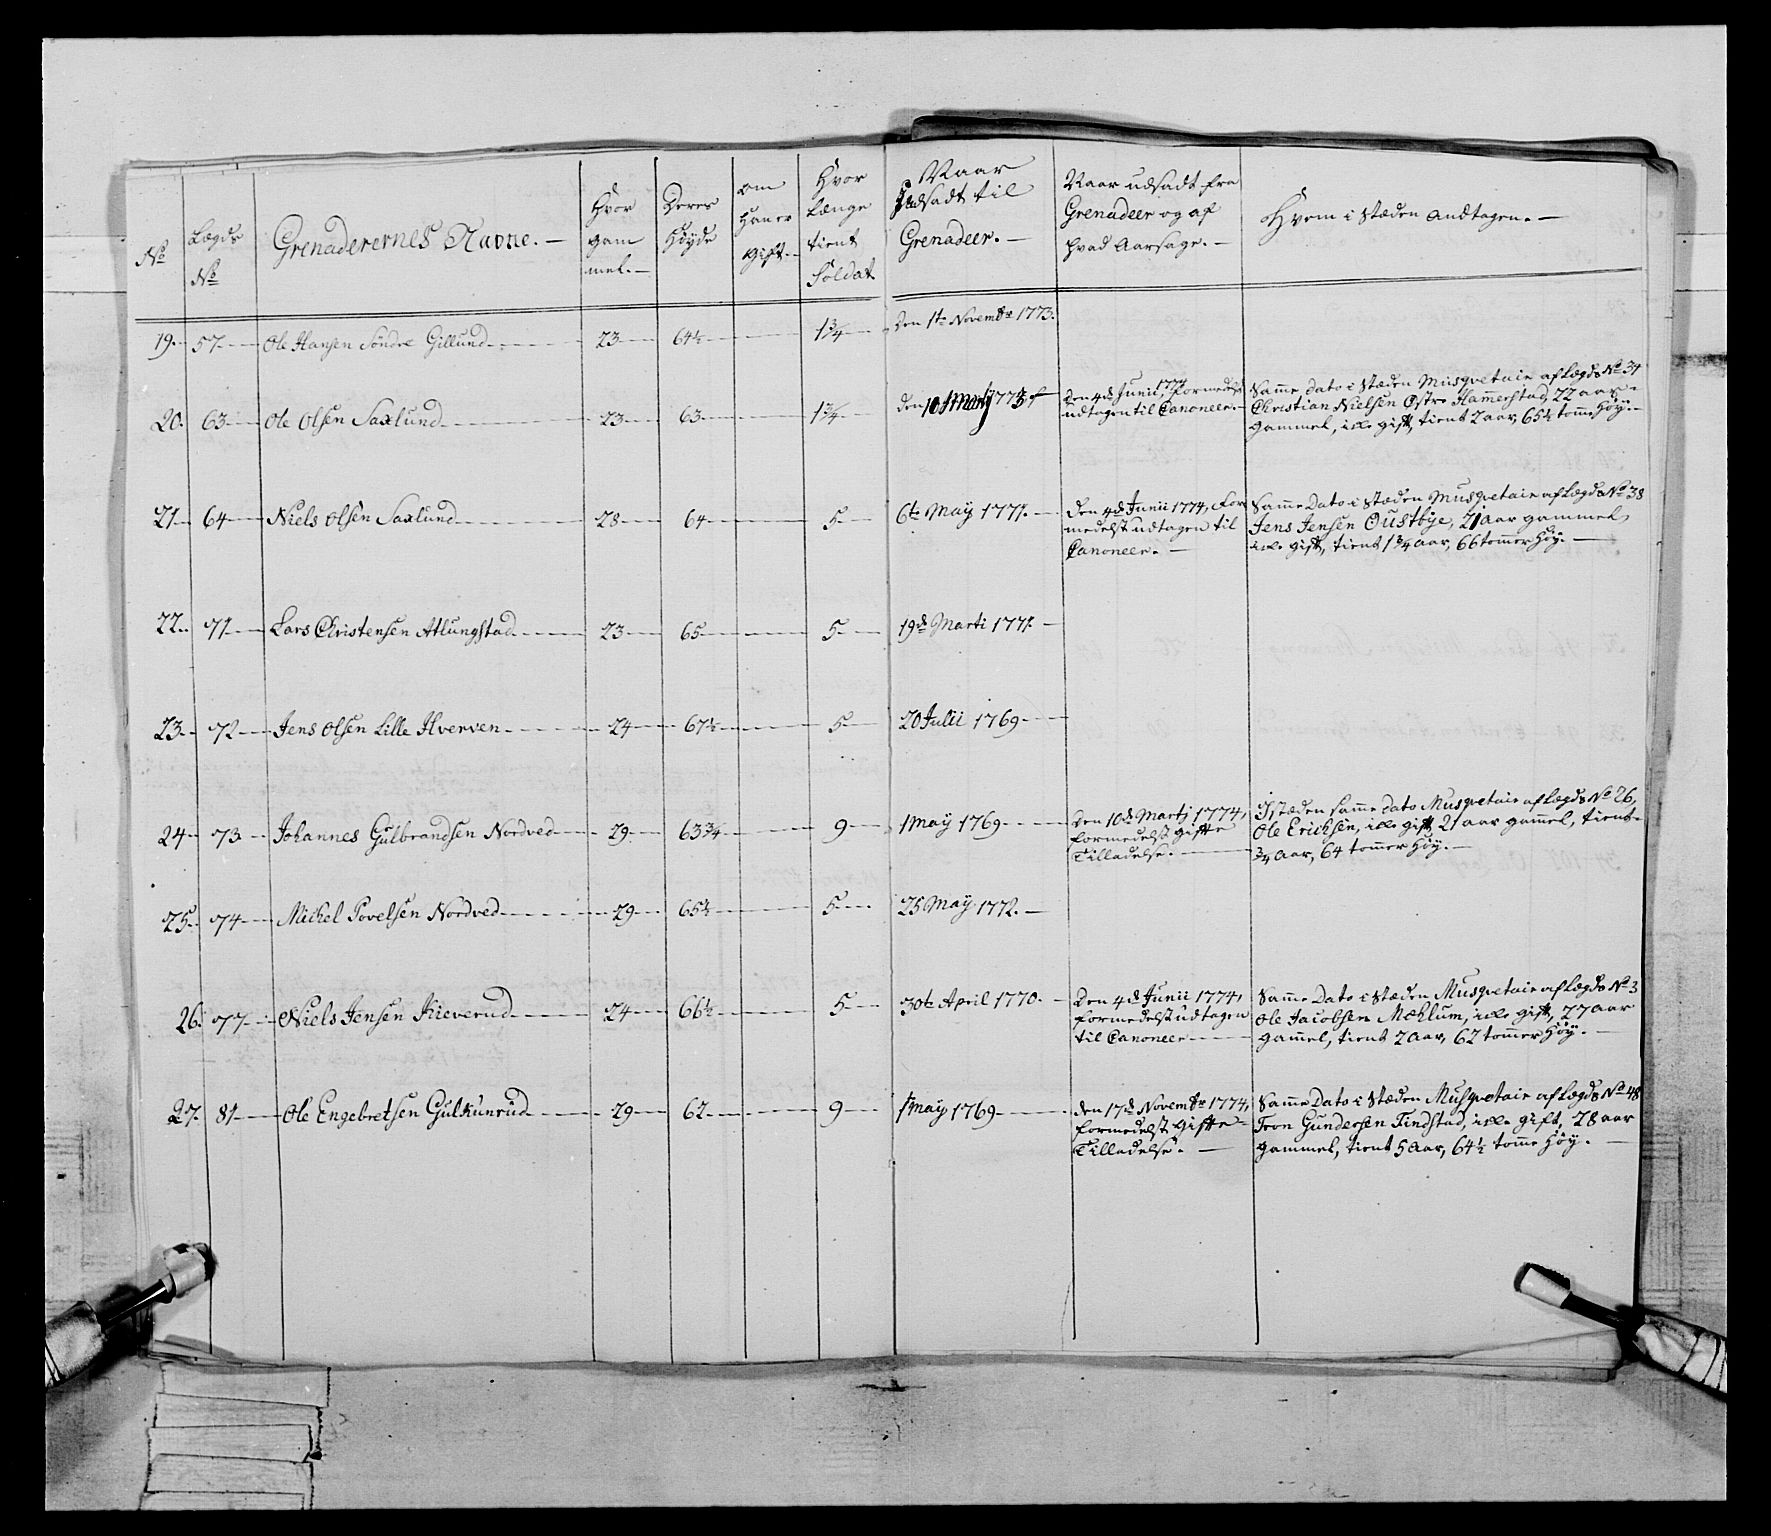 No
Lægds No
Grenaderernes Navne. —
Hvor gam mel. —
Deres Höyde
om Han er gift. —
Hvor Længe tient Soldat
Naar Udsadt til Grenadeer. —
Naar udsadt fra Grenadeer og af hvad Aarsage. —
Hvem i Stæden andtagen. —
19. 57 Ole Hansen Söndre Gillund 23 64½ 1¾ Den 1te Novembr 1773.
20. 63 Ole Olsen Saxlund 23 63 1¾ den 10 Martj 1773
Den 4de Junii 1774 formedelst
udtagen til Canoneer. —
Samme Dato i Stæden Musqvetair af Lægds No 34
Christian Nielsen Östre Hamerstad, 22 aar
gammel, icke gift, tient 2 aar, 65½ tomme höy. —
21 64 Niels Olsen Saxlund 28 64 5 6te May 1771. —
Den 4de Junii 1774, for
medelst udtagen til
Canoneer. —
Samme Dato i Stæden Musqvetair af Lægds No 38
Jens Jensen Oustbye, 21 aar gammel,
icke gift, tient 1¾ aar, 66 tommer höy. —
22. 71 Lars Christensen Atlungstad 23 65 5 19de Marti 1771. —
23. 72 Jens Olsen Lille Hverven 24 67½ 5 20 Julii 1769
24 73 Johannes Gulbrandsen Nordved 29 63¾ 9 1 May 1769
Den 10de Martj 1774,
formedelst gifte
Tilladelse. —
I Stæden samme dato Musqvetair af Lægds No 26,
Ole Erichsen, icke gift, 21 aar gammel, tient
¾ Aar, 64 tommer Höy. —
25. 74 Michel Povelsen Nordved 29 65½ 5 25 May 1772. —
26. 77 Niels Jensen Kieverud 24 66½ 5 30te April 1770. —
Den 4de Junii 1774,
formedelst udtagen
til Canoneer —
Samme Dato i Stæden Musqvetair af Lægds No 3
Ole Jacobsen Mæhlum, icke gift, 27 aar
gammel, tient 2 Aar, 62 tommer Höy. —
27. 81 Ole Engebretsen Gulkunrud 29 62 9 1 May 1769
den 17de Novembr 1774,
formedelst Gifte
Tilladelse. —
Samme Dato i Stæden Musqvetair af Lægds No 48
Tron Gundersen Findstad, icke gift, 28 aar
gammel, tient 5 Aar, 64½ tomme Höy. —